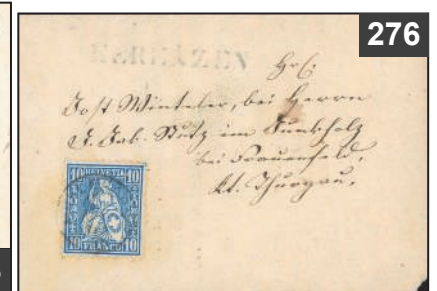 276
KERENZEN
Hrn.
Jost Winteler, bei Herrn
J. Jak. Stutz im Junkholz
bei Frauenfeld,
Kt. Thurgau.
10 HELVETIA 10
10 FRANCO 10